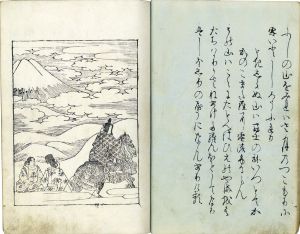 ふしの山を見れはさ月のつこもりに
雪いとしろうふれり
時しらぬ山は富士のねいつとてか
かのこまたらに雪のふるらん
その山はこゝにたとへはひえの山を
はたちはかりかさねあけたらんほとして
なりはしほしりのやうになんありける